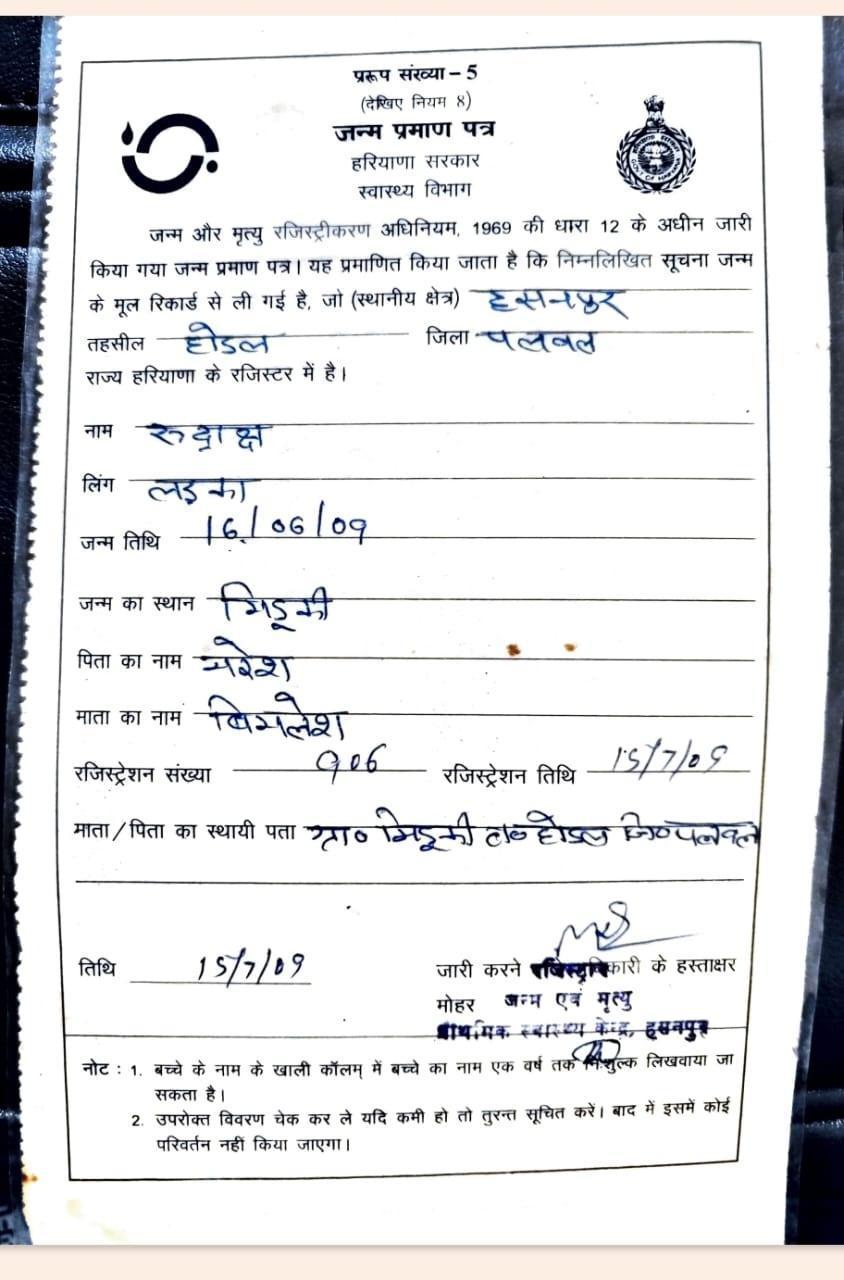 प्ररूप संख्या – 5
(देखिए नियम 8)
जन्म प्रमाण पत्र
हरियाणा सरकार
स्वास्थ्य विभाग
जन्म और मृत्यु रजिस्ट्रीकरण अधिनियम, 1969 की धारा 12 के अधीन जारी
किया गया जन्म प्रमाण पत्र। यह प्रमाणित किया जाता है कि निम्नलिखित सूचना जन्म
के मूल रिकार्ड से ली गई है, जो (स्थानीय क्षेत्र) हसनपुर
तहसील होडल जिला पलवल
राज्य हरियाणा के रजिस्टर में है।
नाम रुद्राक्ष
लिंग लड़का
जन्म तिथि 16/06/09
जन्म का स्थान भिडूकी
पिता का नाम नरेश
माता का नाम बिमलेश
रजिस्ट्रेशन संख्या 906 रजिस्ट्रेशन तिथि 15/7/09
माता/पिता का स्थायी पता ग्रा० भिडूकी त० होडल जि० पलवल
तिथि 15/7/09
जारी करने के हस्ताक्षर
मोहर जन्म एवं मृत्यु
प्राथमिक स्वास्थ्य केन्द्र, हसनपुर
नोट : 1. बच्चे के नाम के खाली कॉलम् में बच्चे का नाम एक वर्ष तक लिखवाया जा
सकता है।
2. उपरोक्त विवरण चेक कर ले यदि कमी हो तो तुरन्त सूचित करें। बाद में इसमें कोई
परिवर्तन नहीं किया जाएगा।